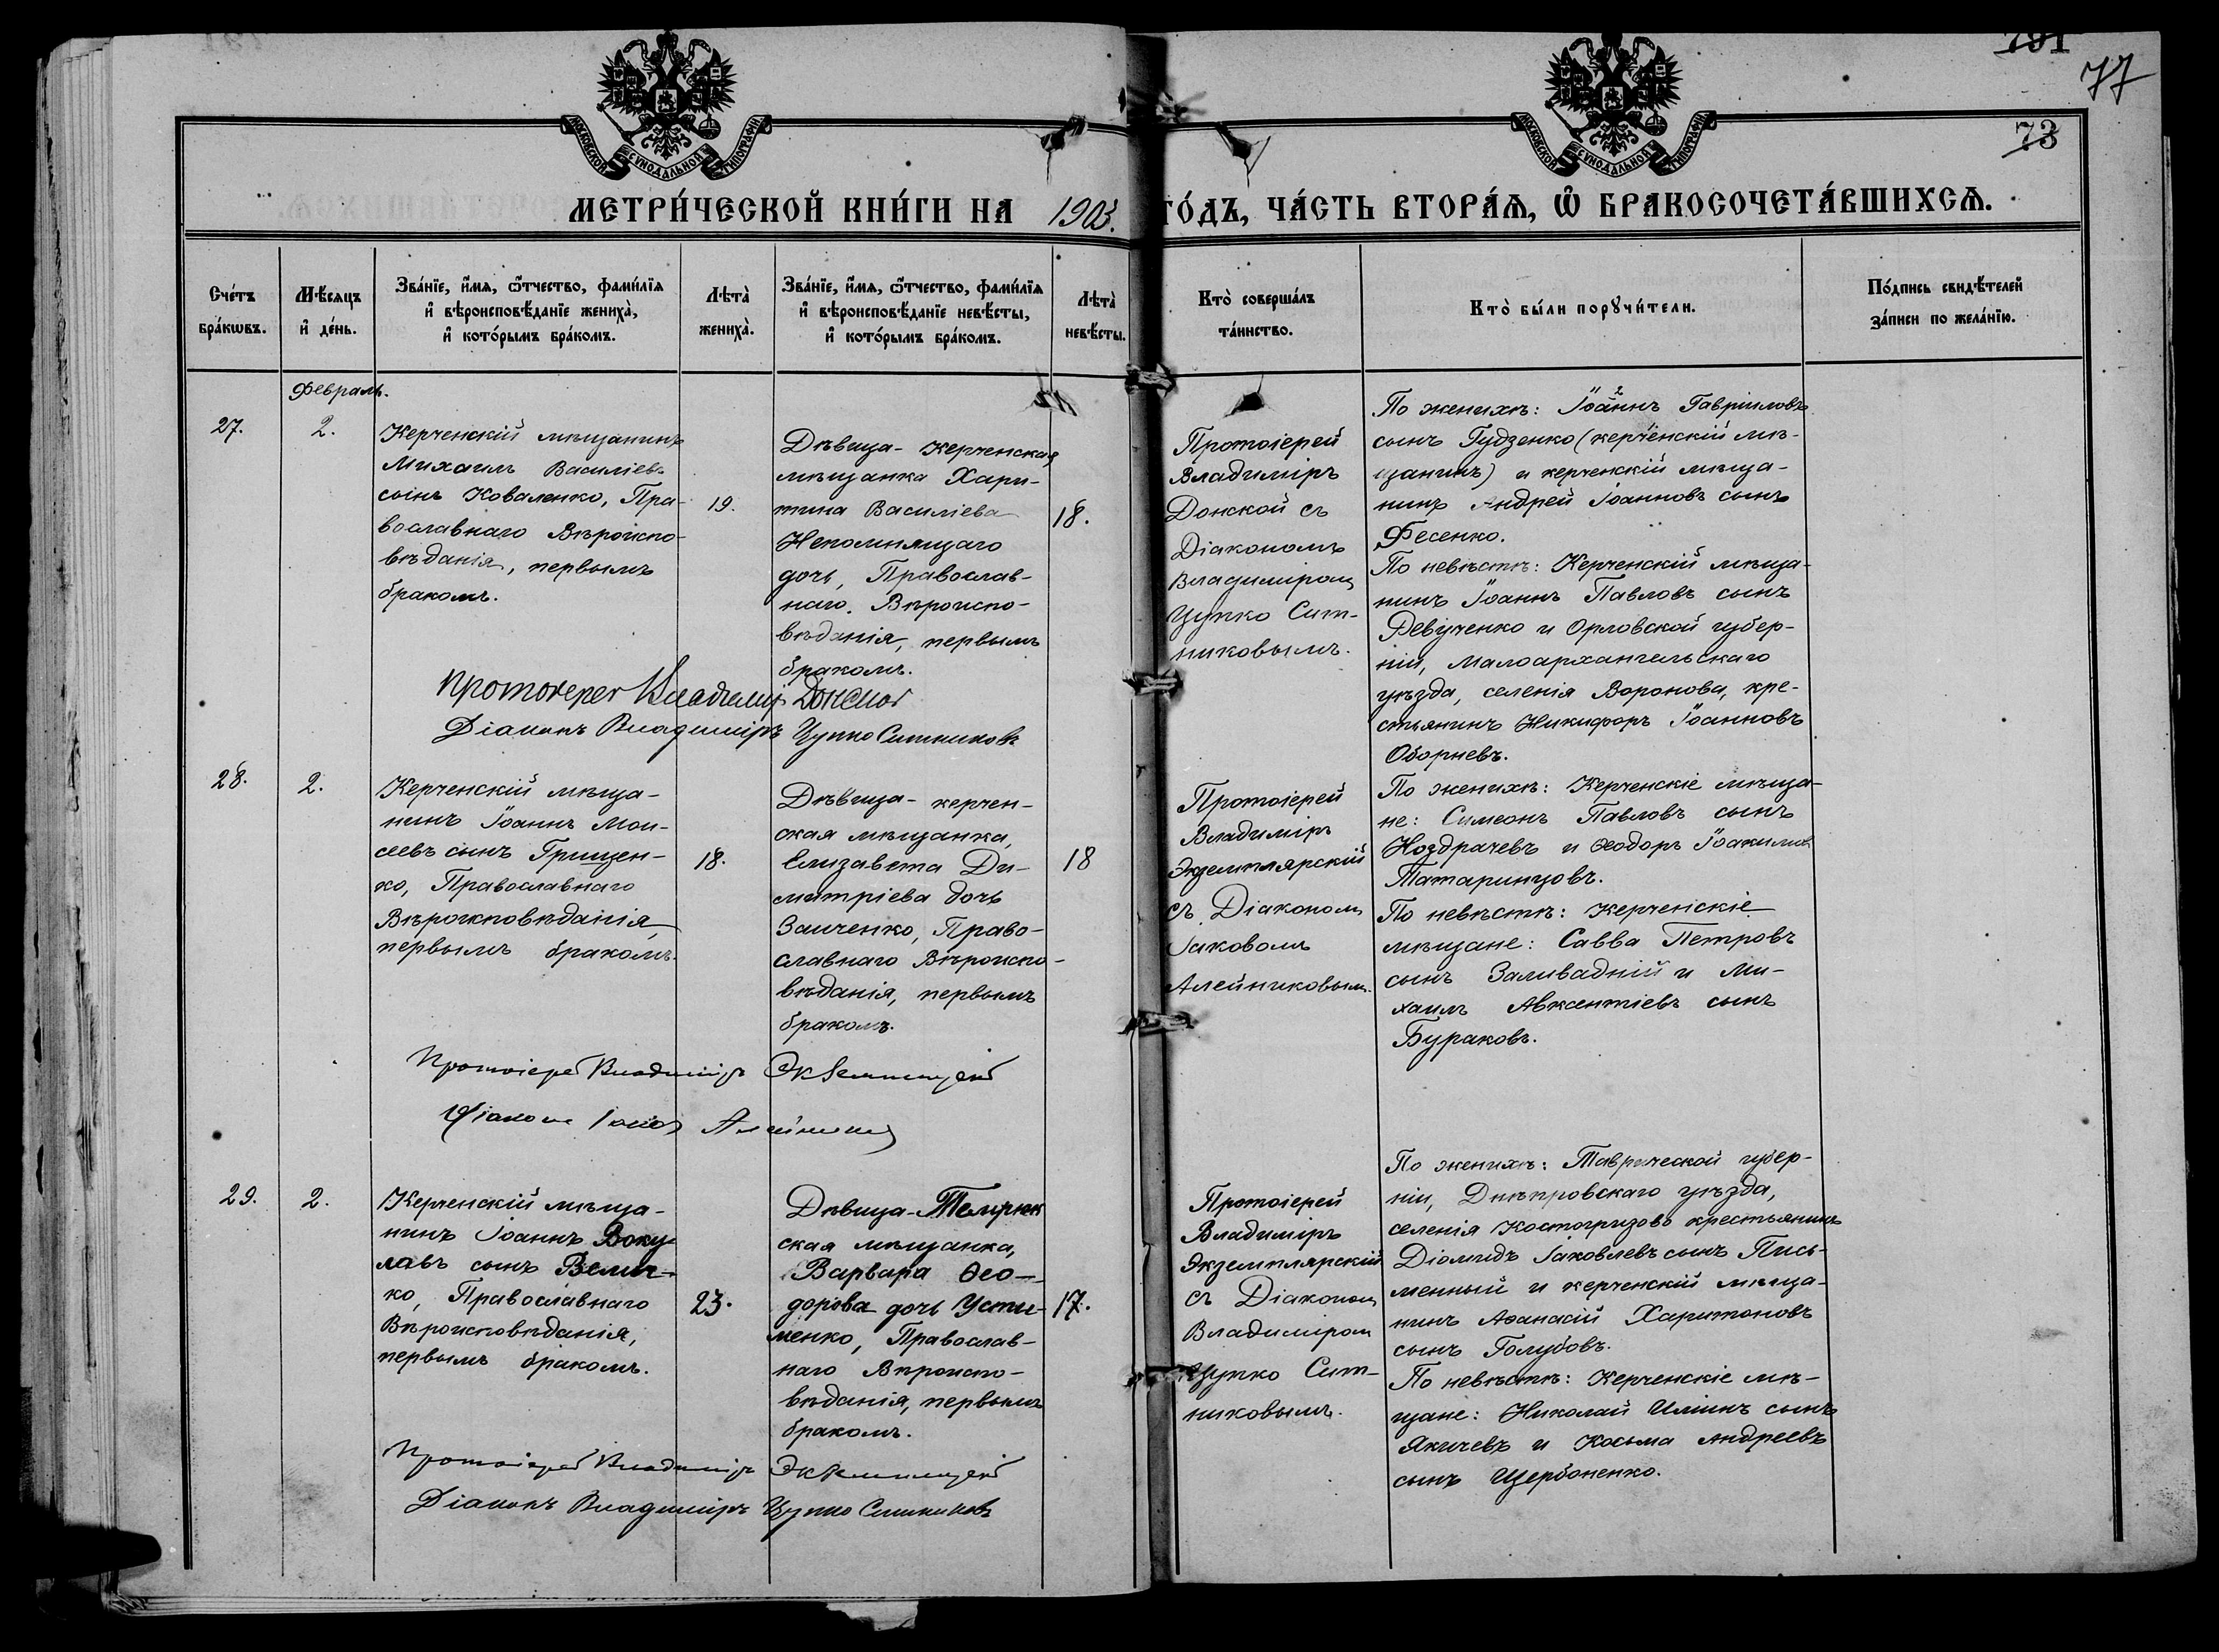 791
77
73
МОСКОВСКОЙ СѴНОДАЛЬНОЙ ТИПОГРАФІИ
МОСКОВСКОЙ СѴНОДАЛЬНОЙ ТИПОГРАФІИ
МЕТРИ́ЧЕСКОЙ КНИ́ГИ НА 1903. ГО́ДЪ, ЧА́СТЬ ВТОРА́Ѧ, Ѡ҆ БРАКОСОЧЕТА́ВШИХСѦ.
Сче́тъ
бра́кѡвъ.
Мѣ́сѧцъ
и҆ де́нь.
Зва́нїе, и҆́мѧ, ѻ҆́тчество, фами́лїѧ
и҆ вѣроисповѣ́данїе жениха̀,
и҆ кото́рымъ бра́комъ.
Лѣта̀
жениха̀.
Зва́нїе, и҆́мѧ, ѻ҆́тчество, фами́лїѧ
и҆ вѣроисповѣ́данїе невѣ́сты,
и҆ кото́рымъ бра́комъ.
Лѣта̀
невѣ́сты.
Кто̀ соверша́лъ
та́инство.
Кто̀ бы́ли порꙋчи́тели.
По́дпись свидѣ́телей
за́писи по жела́нїю.
Февраль.
27.
2.
Керченскій мѣщанинъ
Михаилъ Василіевъ
сынъ Коваленко, Пра-
вославнаго Вѣроиспо-
вѣданія, первымъ
бракомъ.
19.
Дѣвица - Керченская
мѣщанка Хари-
тина Василіева
Непомнящаго
дочь, Православ-
наго Вѣроиспо-
вѣданія, первымъ
бракомъ.
18.
Протоіерей
Владиміръ
Донской съ
Діакономъ
Владиміромъ
Цупко Сит-
никовымъ.
По женихѣ: Іоаннъ Гавріиловъ
сынъ Гудзенко (керченскій мѣ-
щанинъ) и керченскій мѣща-
нинъ Андрей Іоанновъ сынъ
Фесенко.
По невѣстѣ: Керченскій мѣща-
нинъ Іоаннъ Павловъ сынъ
Ревученко и Орловской губер-
ніи, Малоархангельскаго
уѣзда, селенія Воронова, кре-
стьянинъ Никифоръ Іоанновъ
Оборневъ.
Протоіерей Владиміръ Донской
Діаконъ Владиміръ Цупко Ситниковъ
28.
2.
Керченскій мѣща-
нинъ Іоаннъ Мои-
сеевъ сынъ Грищен-
ко, Православнаго
Вѣроисповѣданія,
первымъ бракомъ.
18.
Дѣвица - керчен-
ская мѣщанка,
Елизавета Ди-
митріева дочь
Заиченко, Право-
славнаго Вѣроиспо-
вѣданія, первымъ
бракомъ.
18
Протоіерей
Владиміръ
Экземплярскій
съ Діакономъ
Іаковомъ
Алейниковымъ.
По женихѣ: Керченскіе мѣща-
не: Симеонъ Павловъ сынъ
Ноздрачевъ и Ѳеодоръ Іоакимовъ
Татаринцовъ.
По невѣстѣ: Керченскіе
мѣщане: Савва Петровъ
сынъ Заливадній и Ми-
хаилъ Авксентіевъ сынъ
Бураковъ.
Протоіерей Владиміръ Экземплярскій
Діаконъ Іаковъ Алейниковъ
29.
2.
Керченскій мѣща-
нинъ Іоаннъ Воку-
лавъ сынъ Велич-
ко, Православнаго
Вѣроисповѣданія,
первымъ бракомъ.
23.
Дѣвица - Темрюк
ская мѣщанка,
Варвара Ѳео-
дорова дочь Усти-
менко, Православ-
наго Вѣроиспо-
вѣданія, первымъ
бракомъ.
17.
Протоіерей
Владиміръ
Экземплярскій
съ Діакономъ
Владиміромъ
Цупко Сит-
никовымъ.
По женихѣ: Таврической губер-
ніи, Днѣпровскаго уѣзда,
селенія Костогризово крестьянинъ
Діомидъ Іаковлевъ сынъ Пись-
менный и керченскій мѣща-
нинъ Аѳанасій Харитоновъ
сынъ Голубовъ.
По невѣстѣ: Керченскіе мѣ-
щане: Николай Иліинъ сынъ
Якичевъ и Косьма Андреевъ
сынъ Щербоненко.
Протоіерей Владиміръ Экземплярскій
Діаконъ Владиміръ Цупко Ситниковъ